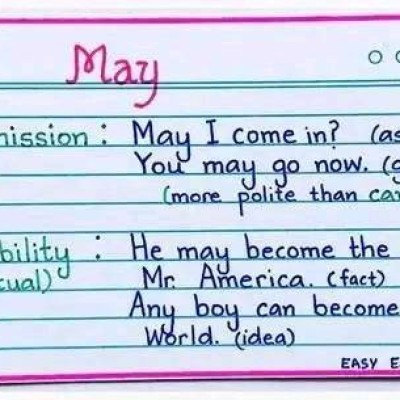 May
mission : May I come in? (as
You may go now. (g
(more polite than can
bility : He may become the
tual) Mr. America. (fact)
Any boy can become
World. (idea)
EASY E